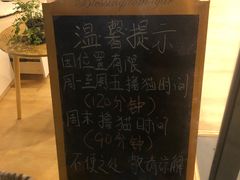 温馨提示
因位置有限
周一至周五撸猫时间
(120分钟)
周末撸猫时间
(90分钟)
不便之处 敬请谅解